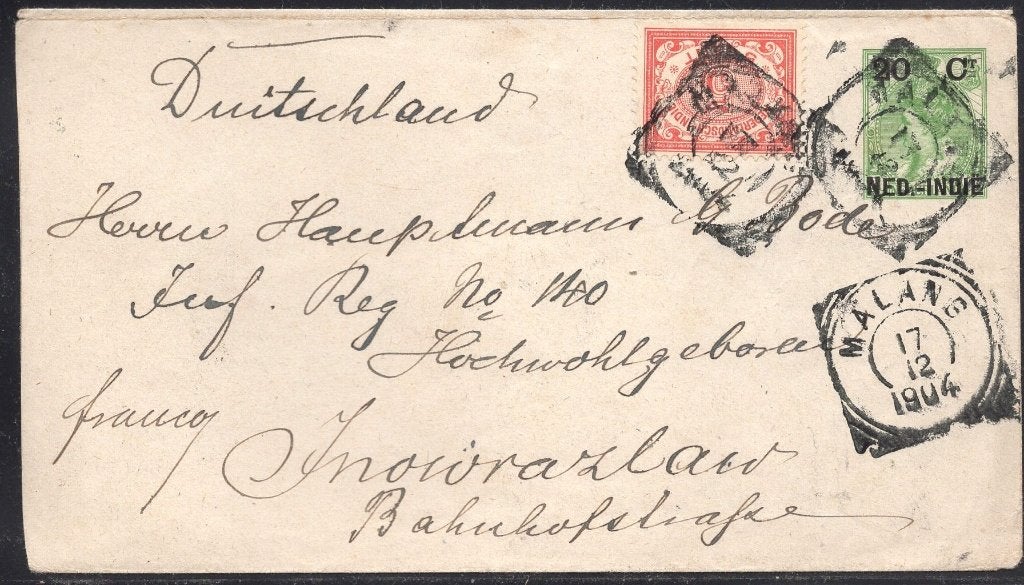 Duitschland
20 Ct
NED.-INDIE
Herrn Hauptmann G Bode
Inf. Reg No 140
Hochwohlgeboren
MALANG
17
12
1904
franco
Inowrazlaw
Bahnhofstraße